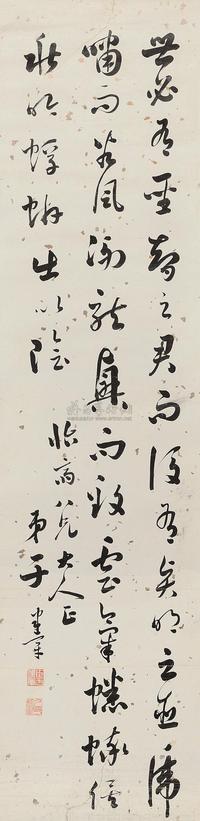 世必有聖智之君而後有賢明之臣虎
嘯而谷風洌龍興而致雲氣蟋蟀俟
秋吟蜉蝣出以陰
八兄大人正
弟